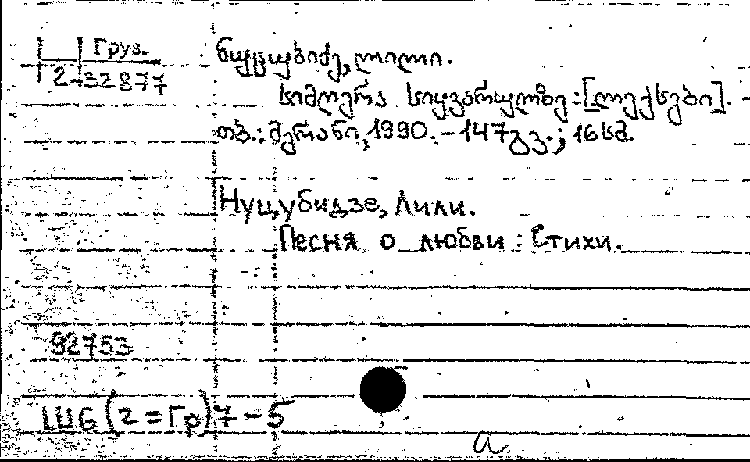 Груз.
2-32877
ნუცუბიძე, ლილი.
სიმღერა სიყვარულზე : [ლექსები]. -
თბ. : მერანი, 1990. - 147 გვ. ; 16 სმ.
Нуцубидзе, Лили.
Песня о любви : Стихи.
92753
Ш6(2=Гр)7-5
а